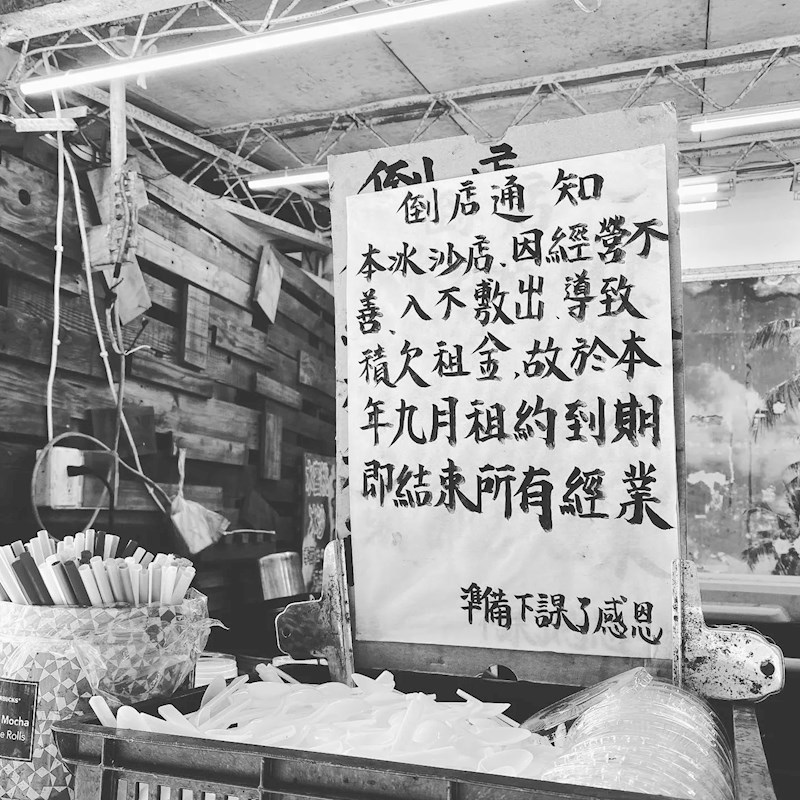 倒店
倒店通知
本冰沙店、因經營不
善、入不敷出、導致
積欠租金,故於本
年九月租約到期
即結束所有經業
準備下課了感恩
Mocha
e Rolls